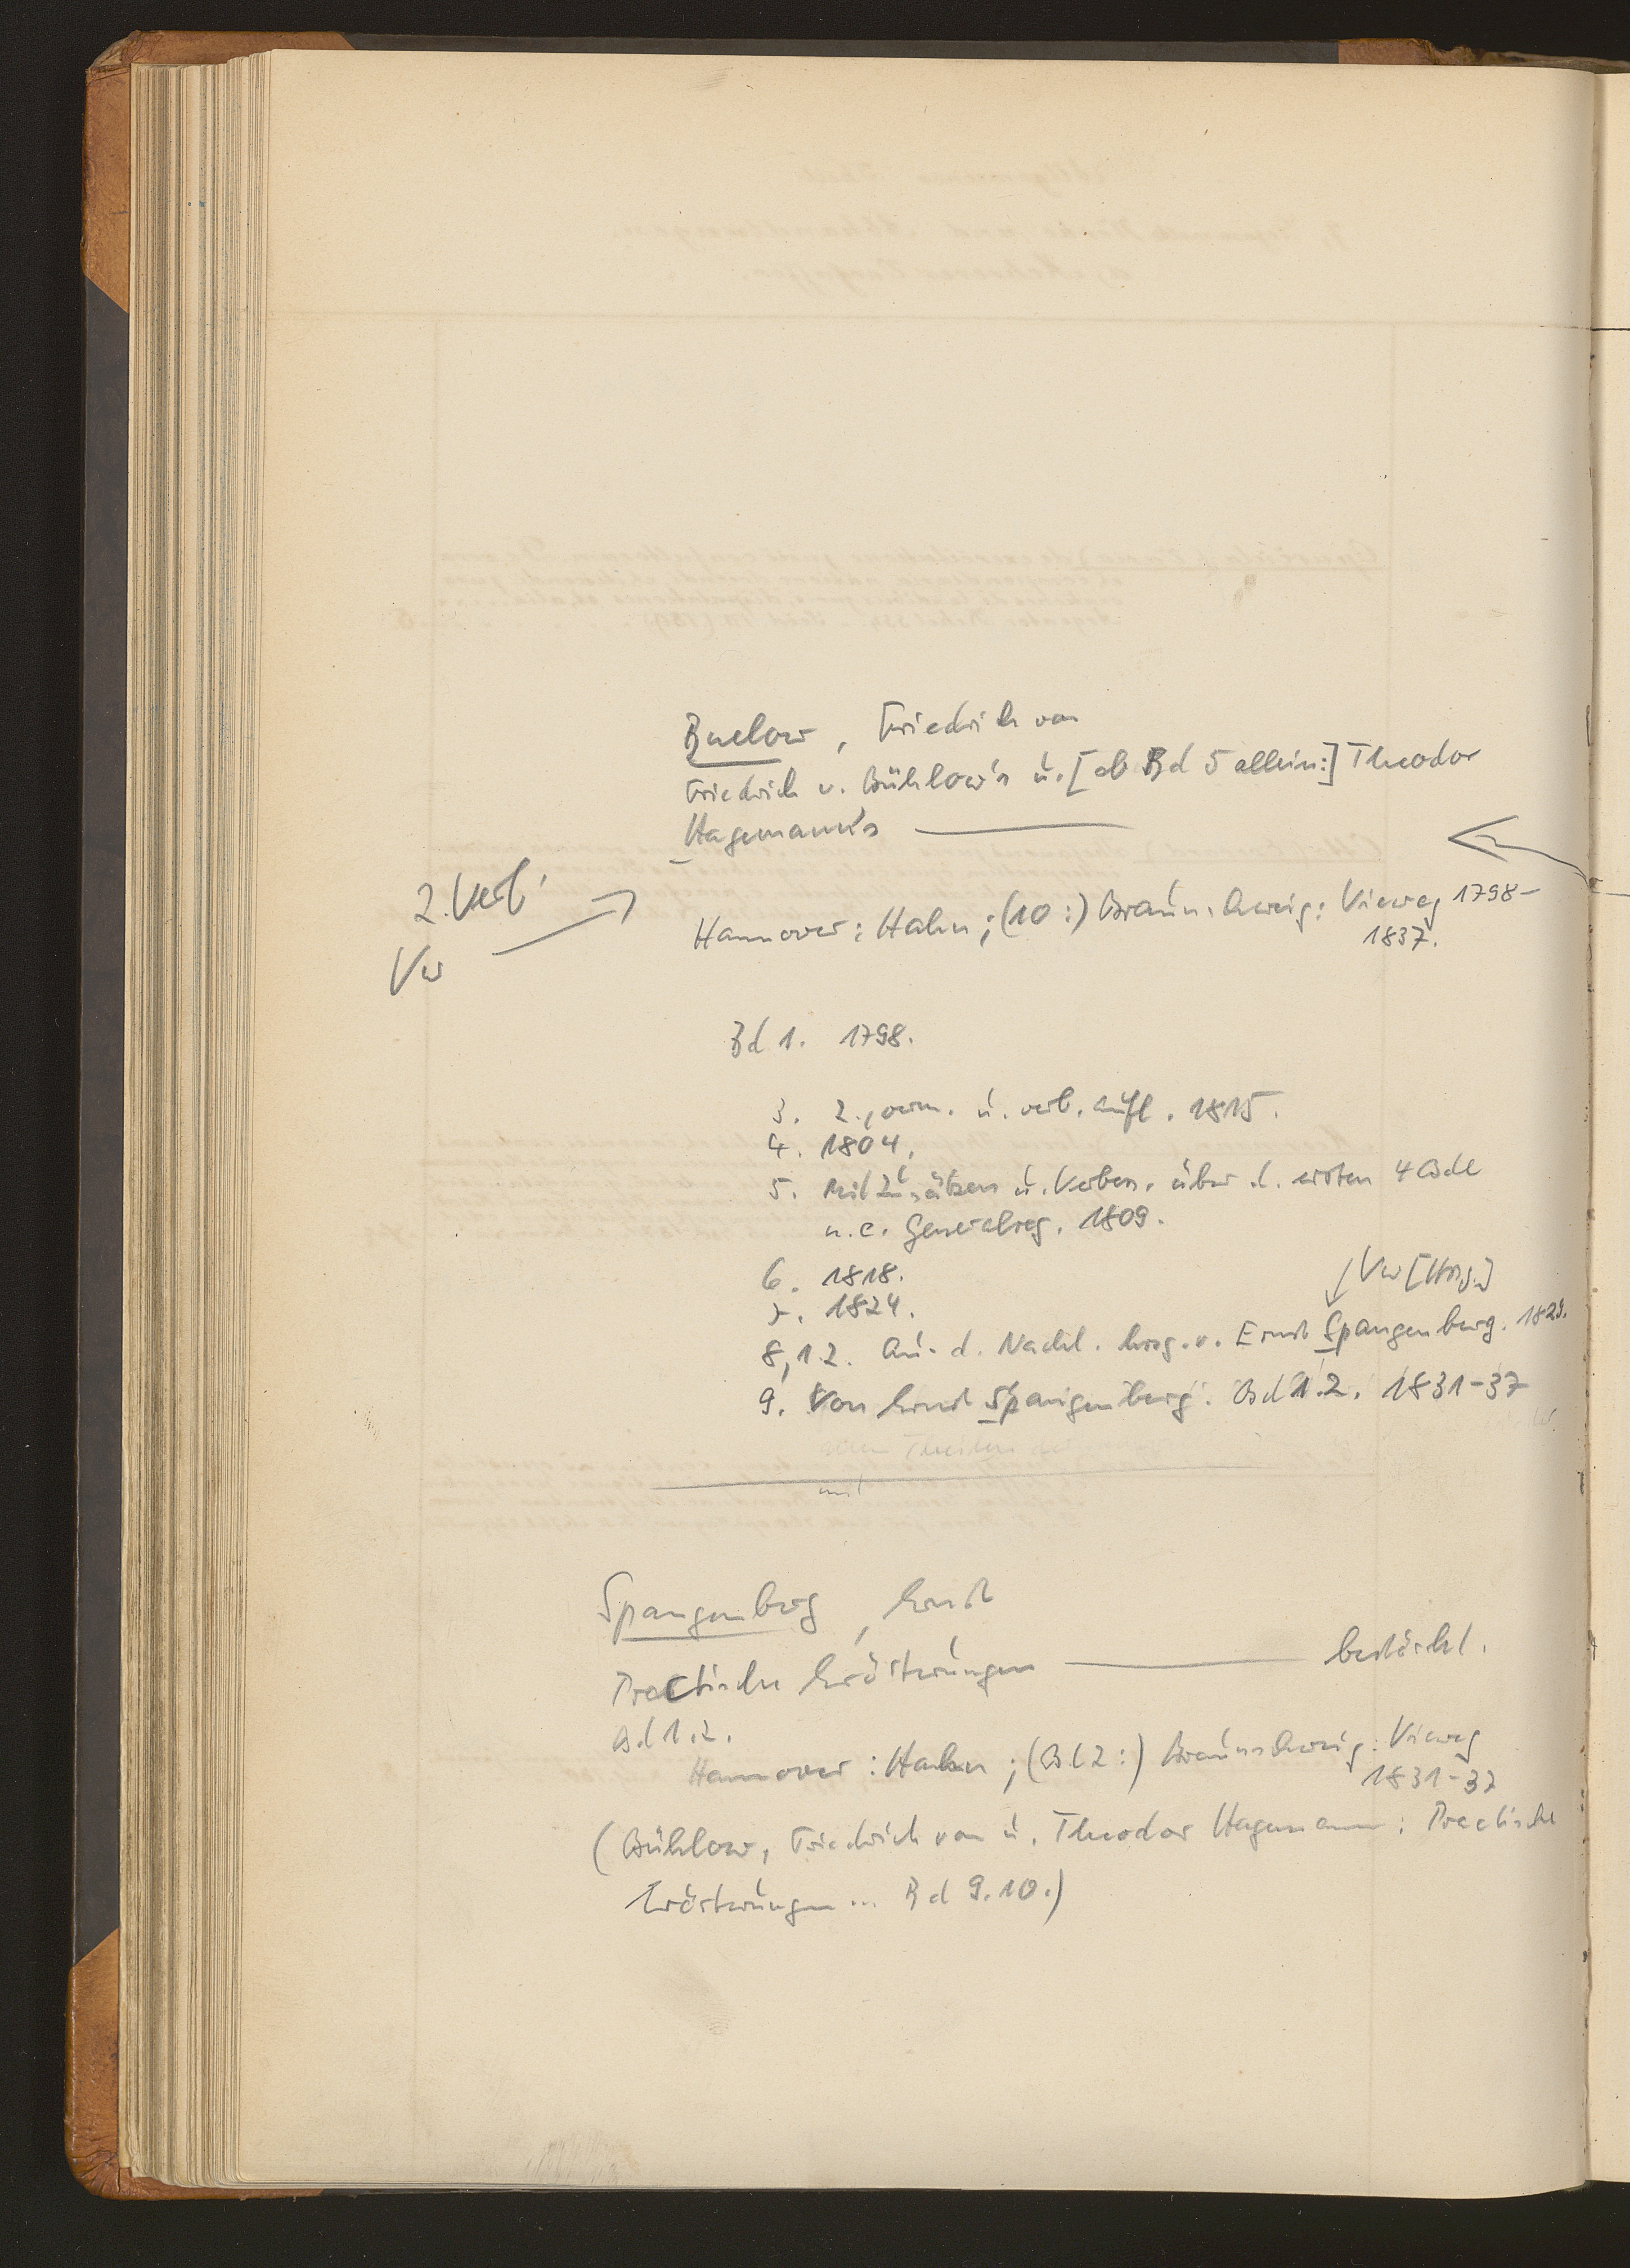 Buelow, Friedrich von
Friedrich v. Bühlow's u. [ab Bd 5 allein:] Theodor
Hagemann's ———
2. Verf.
Vw
Hannover: Hahn; (10:) Braunschweig: Vieweg 1798-
1837.
Bd 1. 1798.
3. 2., verm. u. verb. Aufl. 1815.
4. 1804.
5. Mit Zusätzen u. Verbess. über d. ersten 4 Bde
u. e. Generalreg. 1809.
6. 1818.
Vw [Hrsg.]
7. 1824.
8,1.2. Aus d. Nachl. hrsg. v. Ernst Spangenberg. 1829.
9. Von Ernst Spangenberg. Bd 1.2. 1831-37
allen Theilen der
mit
Spangenberg, Ernst
Practische Erörterungen ——— bestärkt.
Bd 1.2.
Hannover: Hahn; (Bd 2:) Braunschweig: Vieweg
1831-37
(Bühlow, Friedrich von u. Theodor Hagemann: Practische
Erörterungen ... Bd 9.10.)